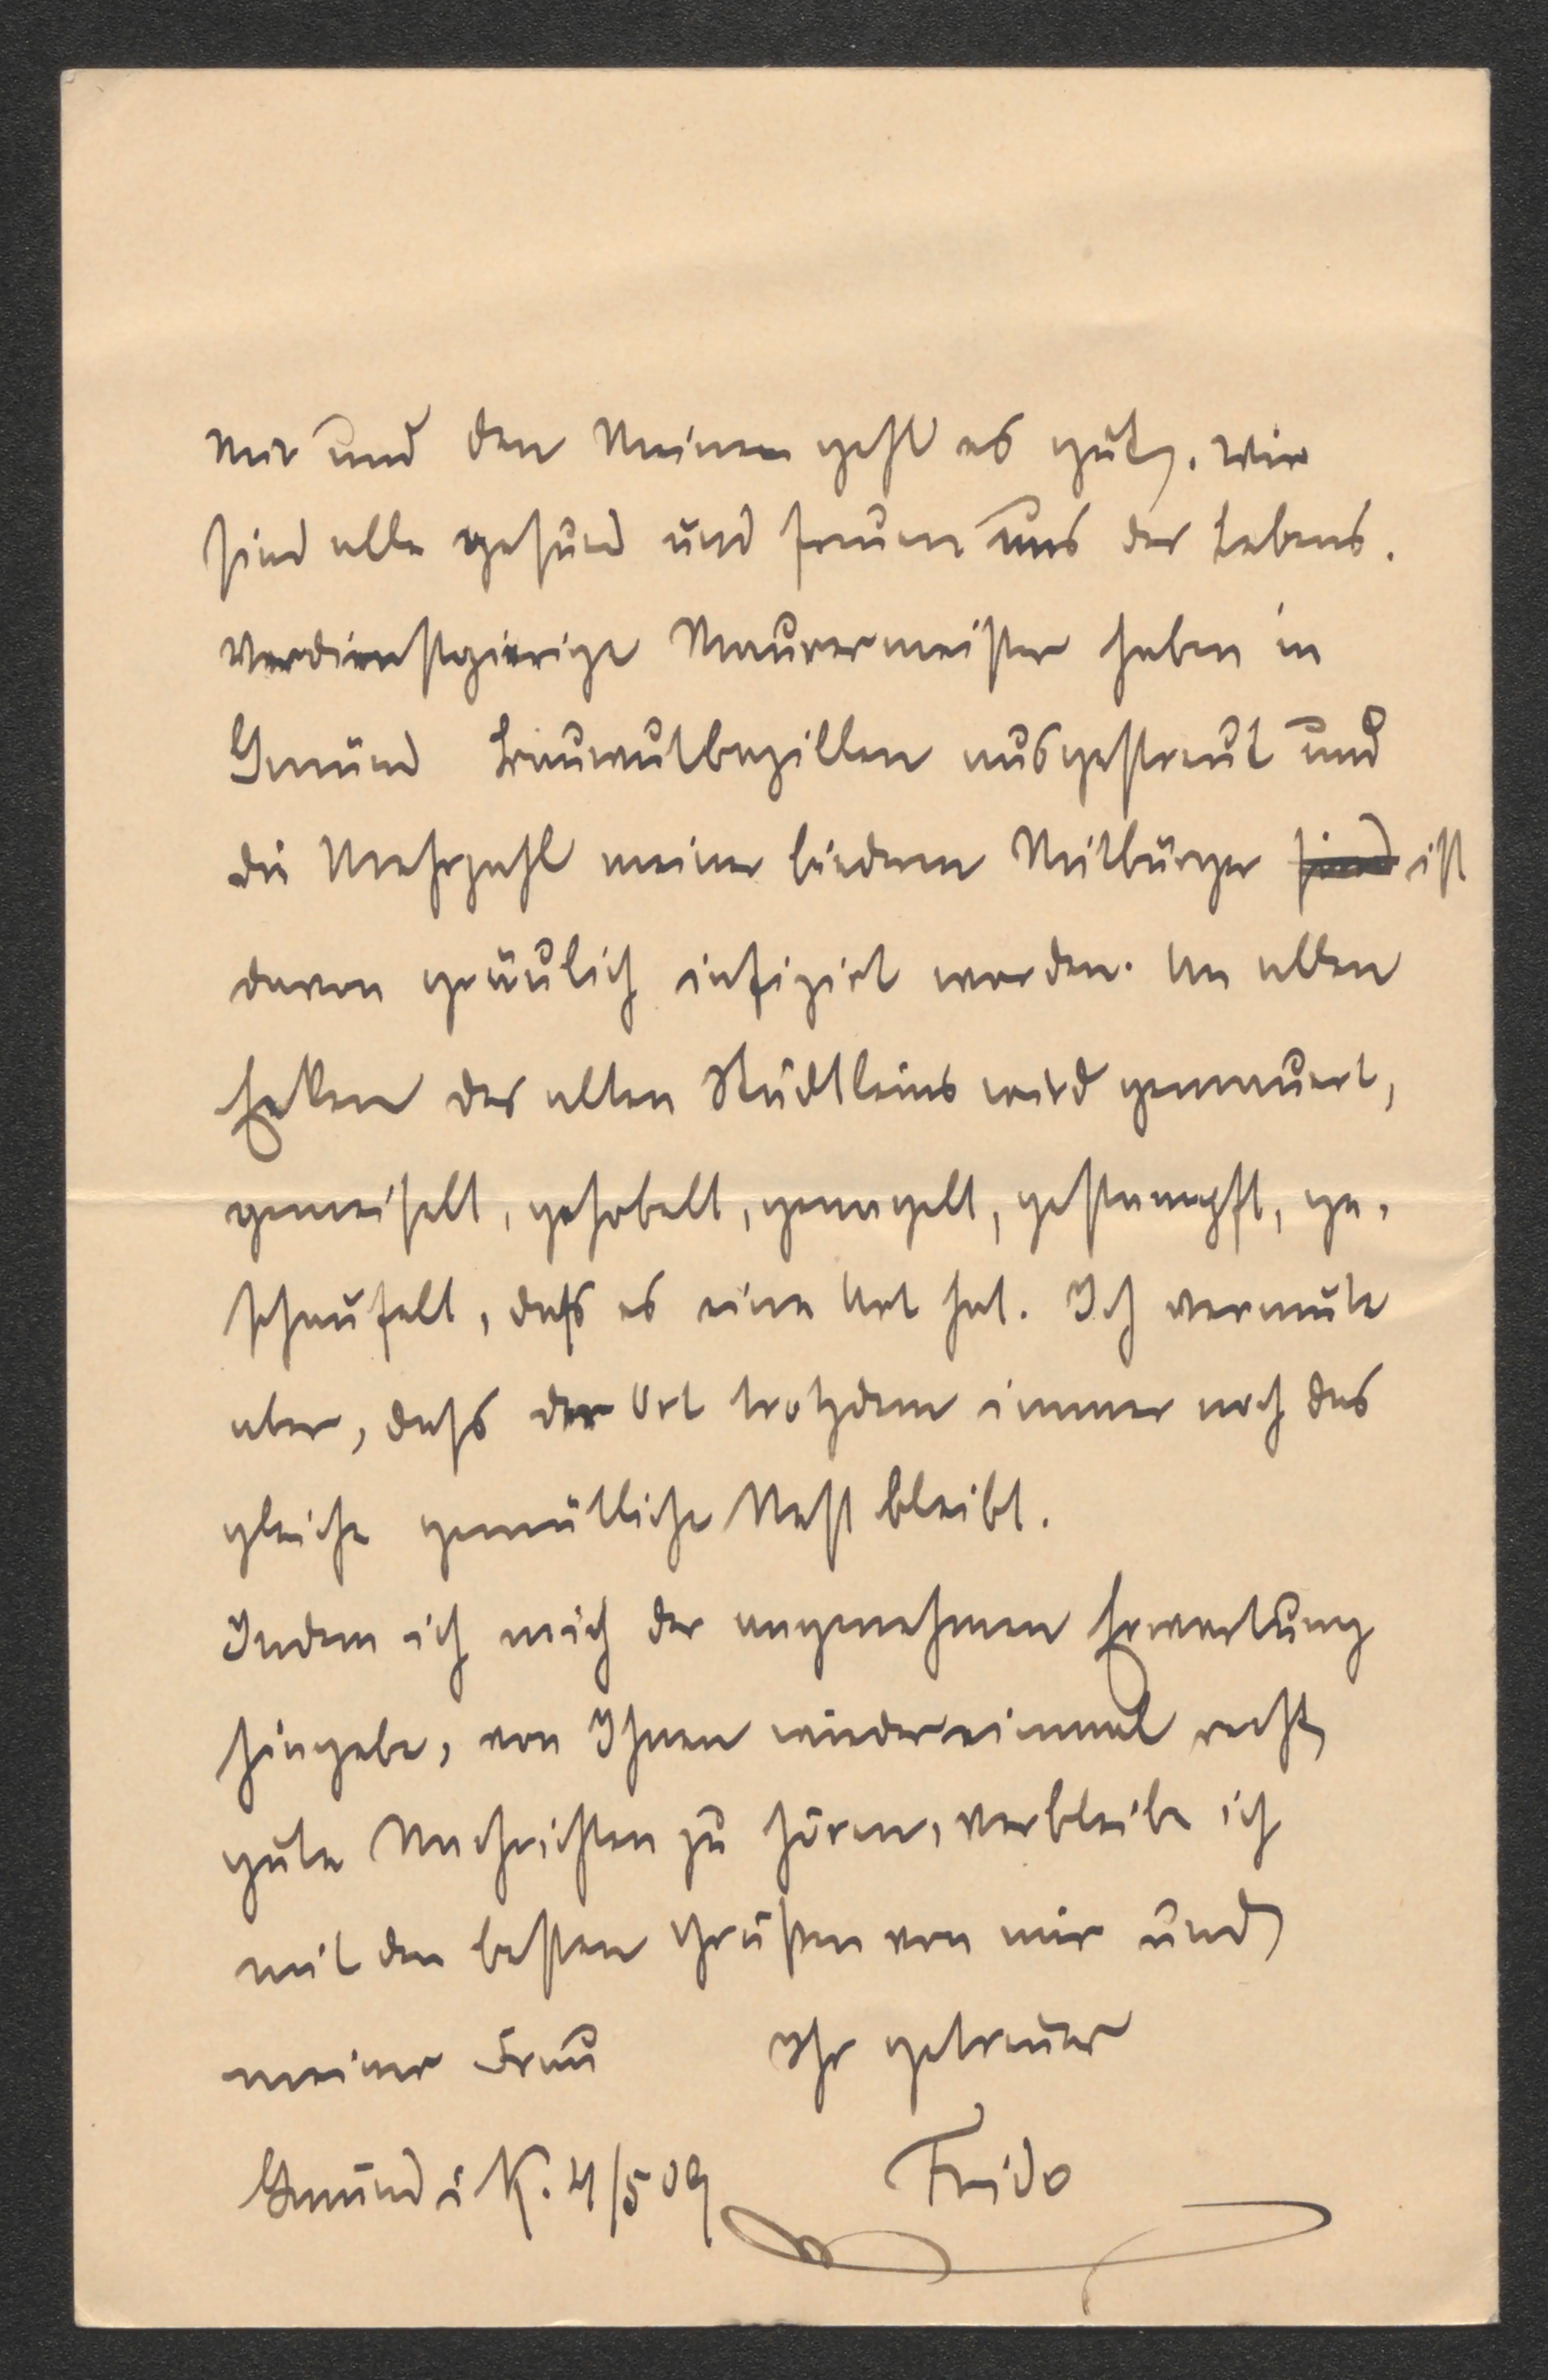 Mir und den Meinen geht es gut. Wir
sind alle gesund und freuen uns des Lebens.
Verdienstgierige Maurermeister haben in
Gmünd Bauwutbazillen ausgestreut und
die Mehrzahl meiner biedern Mitbürger sind ist
davon gräulich infizirt worden. An allen
Ecken des alten Städtleins wird gemauert,
gemeiselt, gehobelt, genagelt, gestampft, ge-
schaufelt, dass es eine Art hat. Ich vermute
aber, dass der Ort trotzdem immer noch das
gleiche gemütliche Nest bleibt.
Indem ich mich der angenehmen Erwartung
hingebe, von Ihnen wiedereinmal recht
gute Nachrichten zu hören, verbleibe ich
mit den besten Grüßen von mir und
meiner Frau Ihr getreuer
Gmünd i K. 4/5 09 Frido